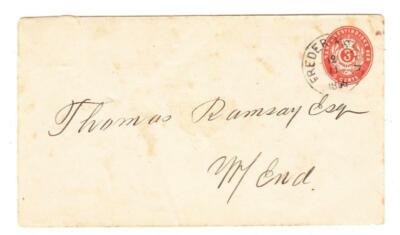 FREDER
3
CENTS
Thomas Ramsay Esq
W/End.